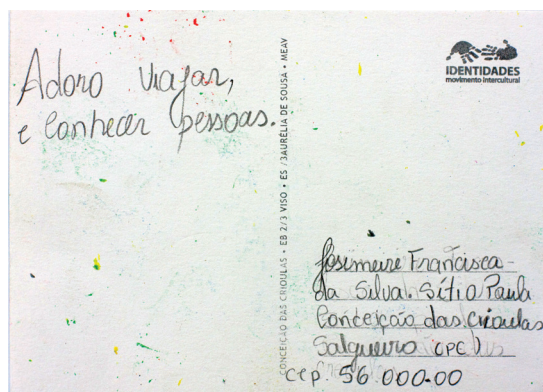 Adoro viajar,
e Conhecer pessoas.
CONCEIÇÃO DAS CRIOULAS • EB 2/3 VISO • ES /3AURÉLIA DE SOUSA • MEAV
IDENTIDADES
movimento intercultural
Josimeire Francisca
da Silva. Sítio Paula
Conceição das Crioulas
Salgueiro (PE)
Cep 56.000.00